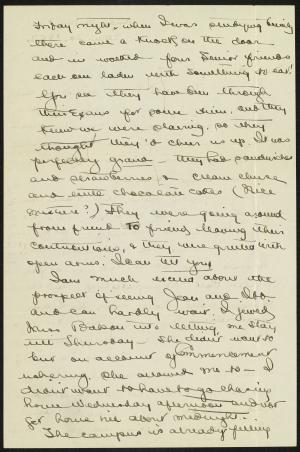 Friday night, when I was studying busily
there came a knock on the door
and in walked four Senior friends
each one laden with something to eat!
You see they have been through
their exams for some time, and they
knew we were slaving, so they
thought they'd cheer us up. It was
perfectly grand — they had sandwiches
and strawberries & cream cheese
and little chocolate cakes (Nice
mixture?) They were going around
from friend to friend leaving their
contributions, & they were greeted with
open arms, I can tell you!
I am much excited about the
prospect of seeing Jean and
and can hardly wait. I
Miss into letting me stay
till Thursday — She didn't want to
but on account of Commencement
ushering, she allowed me to — I
didn't want to have to go chasing
home Wednesday afternoon and not
get home till about midnight.
The campus is already filling